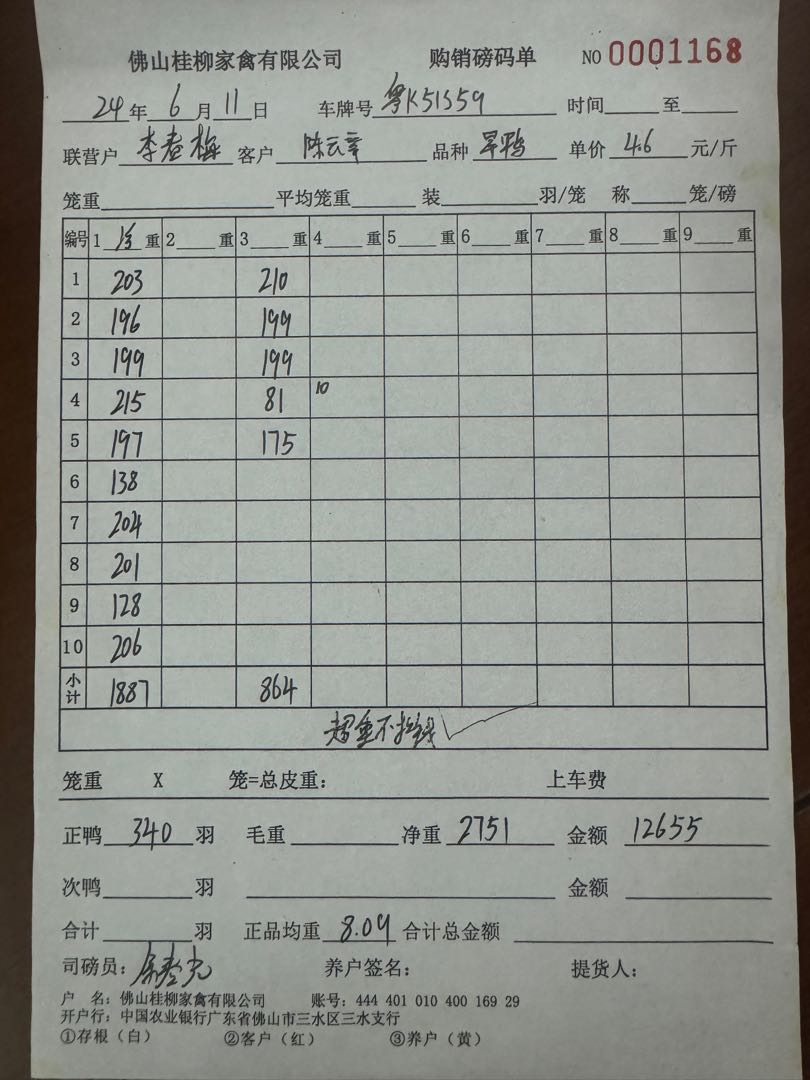 佛山桂柳家禽有限公司 购销磅码单 NO 0001168
24 年 6 月 11 日 车牌号 粤K51S59 时间 至
联营户 李春梅 客户 陈云章 品种 旱鸭 单价 4.6 元/斤
笼重 平均笼重 装 羽/笼 称 笼/磅
编号 1 净 重 2 重 3 重 4 重 5 重 6 重 7 重 8 重 9 重
1 203 210
2 196 199
3 199 199
4 215 81 10
5 197 175
6 138
7 204
8 201
9 128
10 206
小计 1887 864
超重不扣钱
笼重 X 笼=总皮重: 上车费
正鸭 340 羽 毛重 净重 2751 金额 12655
次鸭 羽 金额
合计 羽 正品均重 8.09 合计总金额
司磅员: 养户签名: 提货人:
户 名: 佛山桂柳家禽有限公司 账号: 444 401 010 400 169 29
开户行: 中国农业银行广东省佛山市三水区三水支行
①存根(白) ②客户(红) ③养户(黄)